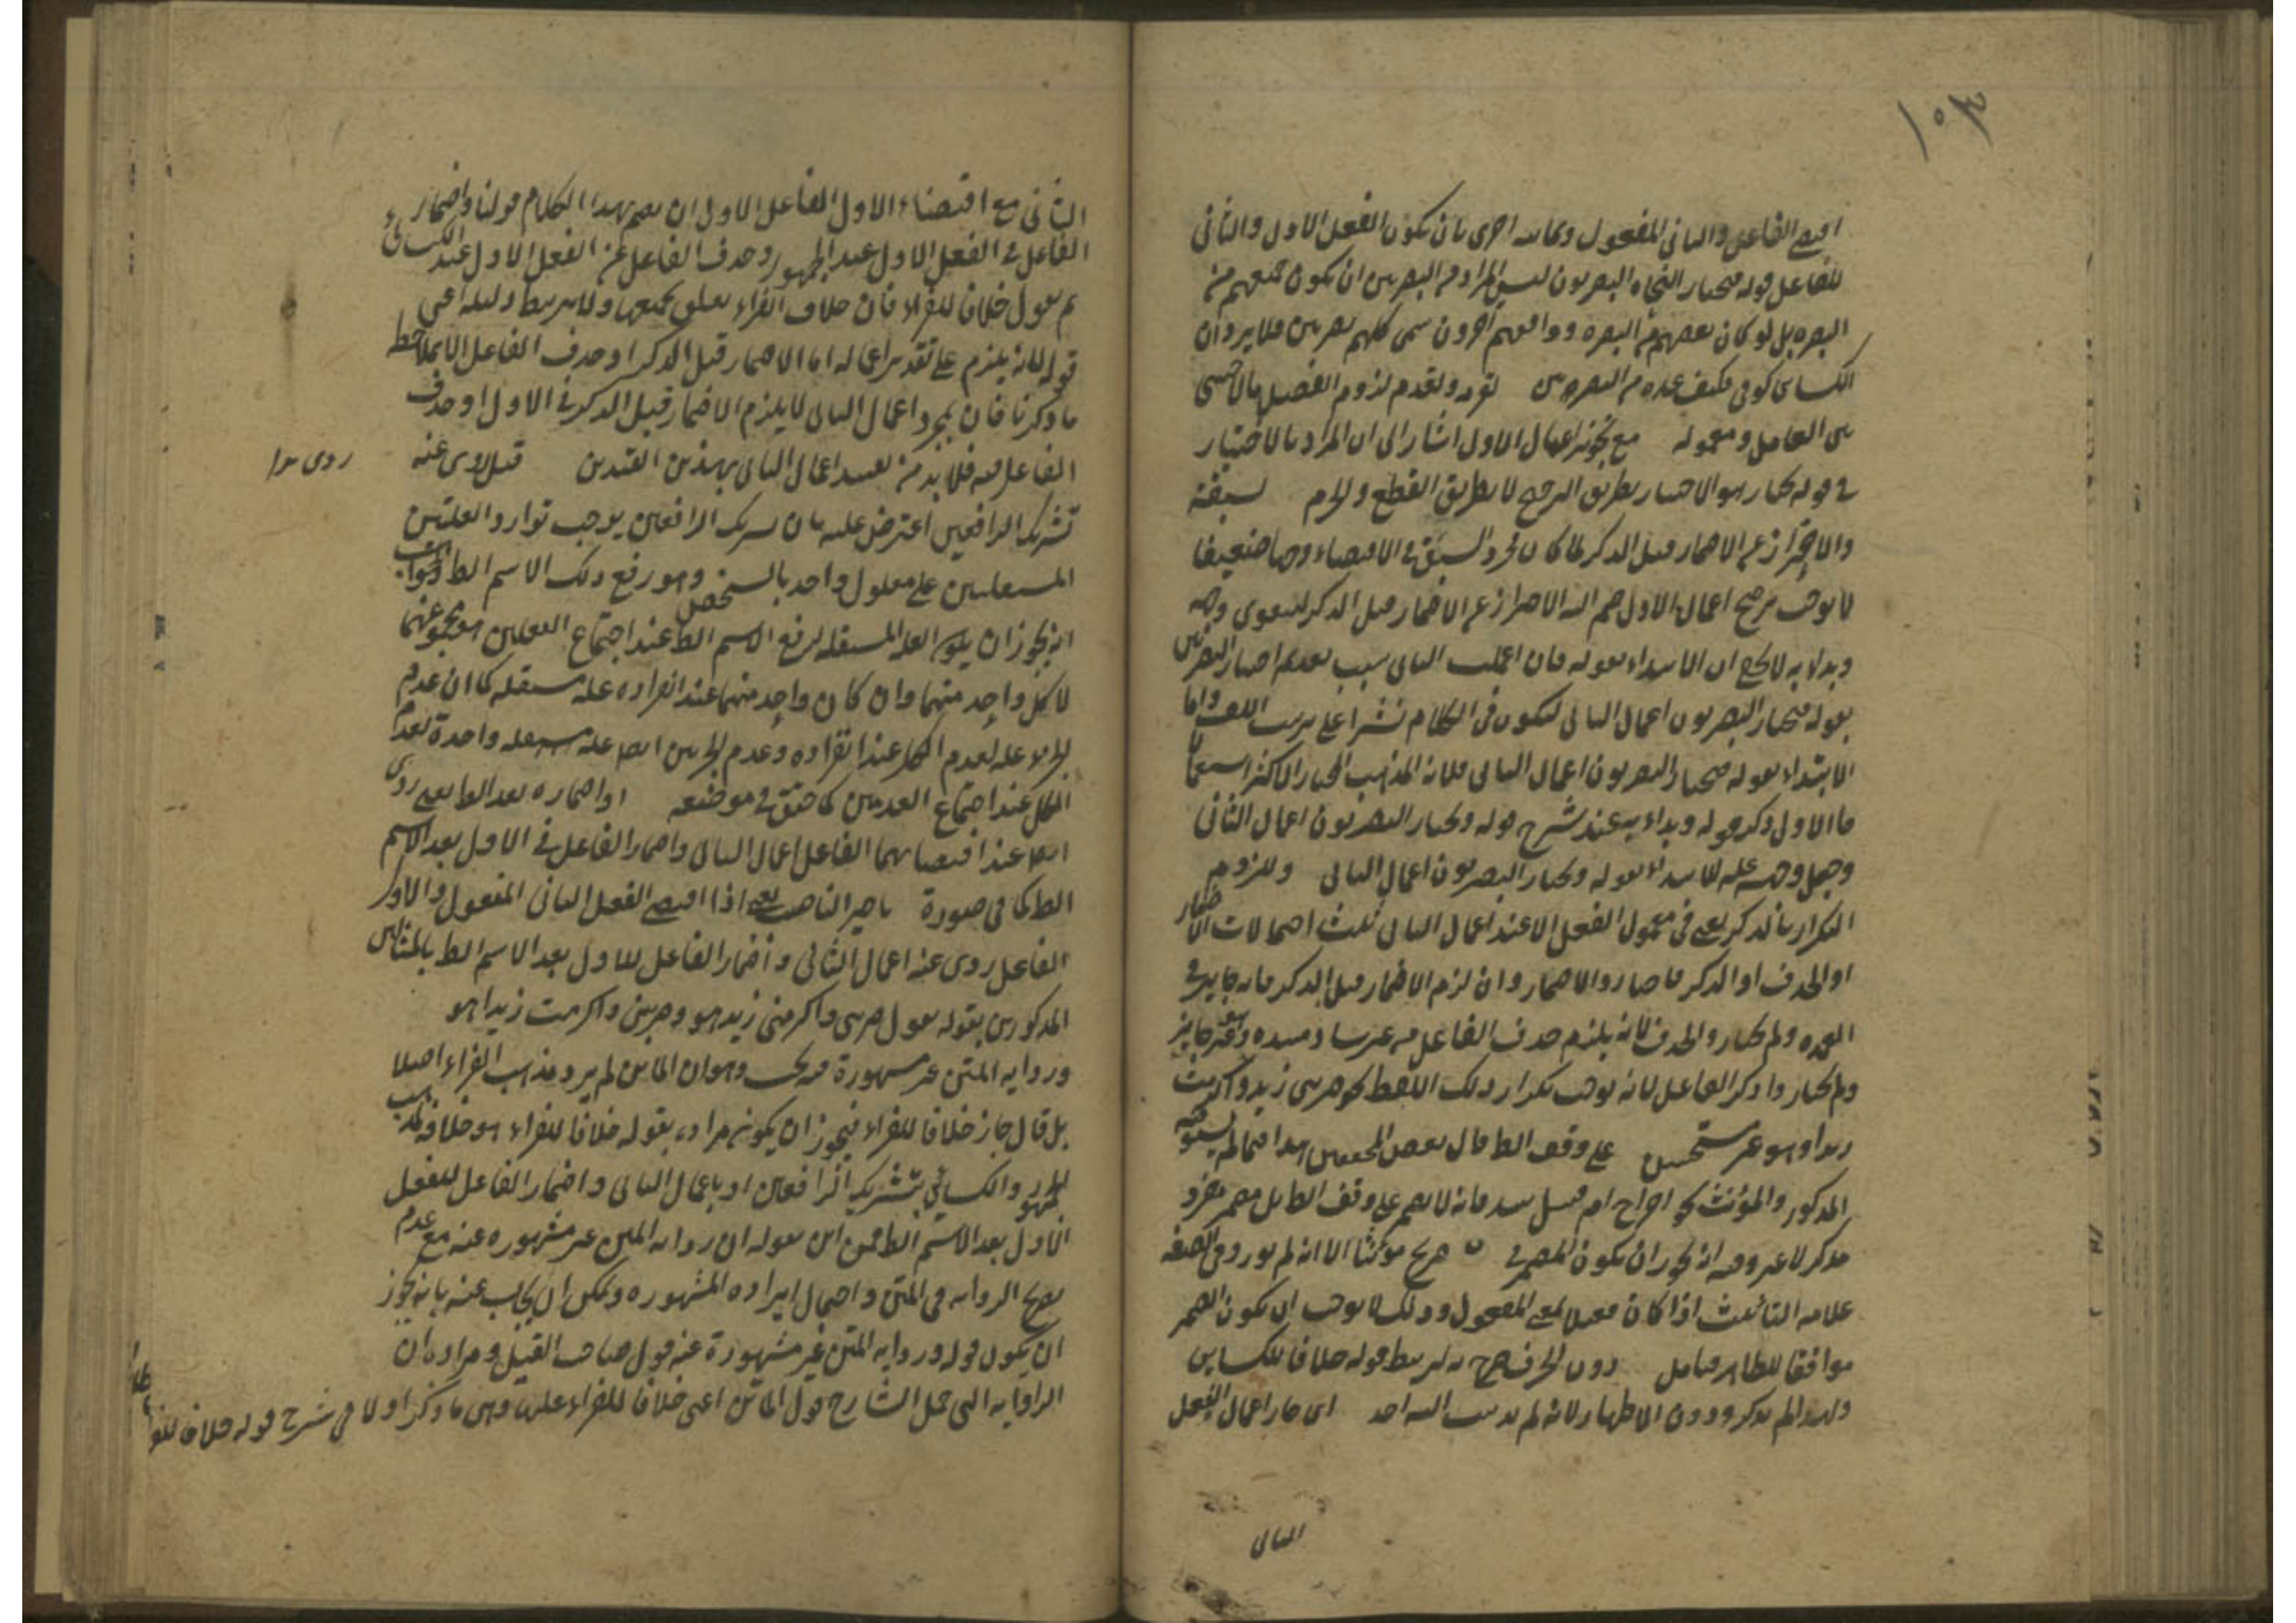 ١٠٣
اقتضى الفاعل والثانى المفعول وتارة اخرى بان يكون الفعل الاول والثانى
للفاعل قوله فيختار النحاة البصريون ليس المراد من البصريين ان يكون جميعهم من
البصره بل لو كان بعضهم من البصره ووافقهم آخرون سمى كلهم بصريين فلا يرد ان
الكسائى كوفى فكيف عده من البصريين لقربه ولعدم لزوم الفصل بالاجنبى
بين العامل ومعموله مع تجويز اعمال الاول اشار الى ان المراد بالاختيار
فى قوله يختار هو الاختيار بطريق الترجيح لا بطريق القطع والجزم لسبقه
والاحتراز عن الاضمار قبل الذكر لما كان مجرد السبق فى الاقتضاء وجها ضعيفا
لا يوجب ترجيح اعمال الاول ضم اليه الاحتراز عن الاضمار قبل الذكر ليتقوى وجهه
وبداء به لا يخ ان الابتداء بقوله فان اعملت الثانى بسبب تقديم اختيار البصريين
بقوله فيختار البصريون اعمال الثانى ليكون فى الكلام نشرا على ترتيب اللف واما
الابتداء بقوله فيختار البصريون اعمال الثانى فلانه المذهب المختار الاكثر استعمالا
فالاولى ذكر قوله وبداء به عند شرح قوله ويختار البصريون اعمال الثانى
وجعل وجهه علة للابتداء بقوله ويختار البصريون اعمال الثانى وللزوم
التكرار بالذكر يعنى فى معمول الفعل الا عند اعمال الثانى ثلث احتمالات الاضمار
او الحذف او الذكر فاختاروا الاضمار وان لزم الاضمار قبل الذكر فانه جايز فى
العمده ولم يختاروا الحذف لانه يلزم حذف الفاعل من غير ساد مسده وهو غير جايز
ولم يختاروا ذكر الفاعل لانه يوجب تكرار ذلك اللفظ نحو ضربنى زيد واكرمت
زيدا وهو غير مستحسن على وفق الظ قال بعض المحققين هذا فيما لم يستو فيه
المذكور والمؤنث نحو اجراح ام قتيل هند فانه لا يضمر على وفق الظ بل مضمر مفرد
مذكر لا غير وفيه انه يجوز ان يكون المضمر فى جريح مؤنثا الا انه لم يورد فى الصفه
علامه التانيث اذا كان فعيلا بمعنى المفعول وذلك لا يوجب ان يكون الضمير
موافقا للظاهر فتامل دون الحذف صرح به ليرتبط قوله خلافا للكسائى
ولهذا لم يذكر ودون الاظهار لانه لم يذهب اليه احد اى جاز اعمال الفعل
الثانى
الثانى مع اقتضاء الاول الفاعل الاولى ان يضم بهذا الكلام قولنا واضمار
الفاعل فى الفعل الاول عند الجمهور وحذف الفاعل عن الفعل الاول عند الكسائى
ثم يقول خلافا للفراء فان خلاف الفراء يتعلق بجميعها ولا يرتبط دليله اعنى
قوله لانه يلزم على تقدير اعماله اما الاضمار قبل الذكر او حذف الفاعل الا بملاحظه
ما ذكرنا فان بمجرد اعمال الثانى لا يلزم الاضمار قبل الذكر فى الاول او حذف
الفاعل منه فلا بد من تقييد اعمال الثانى بهذين القيدين قيل روى عنه
تشريك الرافعين اعترض عليه بان تشريك الرافعين يوجب توارد العلتين
المستقلتين على معلول واحد بالشخص وهو رفع ذلك الاسم الظ والجواب
انه يجوز ان يكون العله المستقله لرفع الاسم الظ عند اجتماع الفعلين هو مجموعهما
لا كل واحد منهما وان كان واحد منهما عند انفراده علة مستقله كما ان عدم
الجزء علة لعدم الكل عند انفراده وعدم الجزئين ايضا علة مستقله واحدة لعدم
الكل عند اجتماع العدمين كما حقق فى موضعه او اضماره بعد الظ يعنى روى
ايضا عند اقتضائهما الفاعل اعمال الثانى واضمار الفاعل فى الاول بعد الاسم
الظ كما فى صورة تاخير الناصب يعنى اذا اقتضى الفعل الثانى المفعول والاول
الفاعل روى عنه اعمال الثانى واضمار الفاعل للاول بعد الاسم الظ بالمثالين
المذكورين بقوله يقول ضربنى واكرمنى زيد هو وضربنى واكرمت زيدا هو
ورواية المتن غير مشهورة فيه بحث وهو ان الماتن لم يرد مذهب الفراء اصلا
بل قال جاز خلافا للفراء فيجوز ان يكون مراده بقوله خلافا للفراء هو خلافه لمذهب
الجمهور والكسائى بتشريك الرافعين او باعمال الثانى واضمار الفاعل للفعل
الاول بعد الاسم الظ فمن اين يقول ان رواية المتن غير مشهوره عنه مع عدم
تصريح الرواية فى المتن واحتمال ايراده المشهوره ويمكن ان يجاب عنه بانه يجوز
ان يكون قوله ورواية المتن غير مشهورة عنه قول صاحب القيل ومراده ان
الرواية التى حمل الشارح قول الماتن اعنى خلافا للفراء عليها وهى ما ذكر اولا فى شرح قوله خلافا للفراء